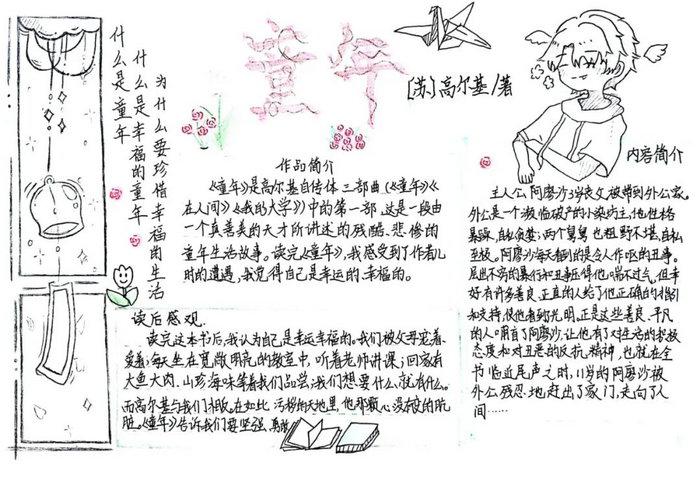 童年
[苏]高尔基/著
什么是童年
什么是幸福的童年
为什么要珍惜幸福的生活
作品简介
《童年》是高尔基自传体三部曲(《童年》《
在人间》《我的大学》)中的第一部,这是一段由
一个真善美的天才所讲述的残酷、悲惨的
童年生活故事。读完《童年》,我感受到了作者儿
时的遭遇,我觉得自己是幸运的、幸福的。
读后感观
读完这本书后,我认为自己是幸运幸福的。我们被父母宠着
爱着;每天坐在宽敞明亮的教室中,听着老师讲课;回家有
大鱼大肉、山珍海味等着我们品尝;我们想要什么,就有什么。
而高尔基与我们相反,在如此污秽的天地里,他那颗心没有变的肮
脏。《童年》告诉我们要坚强、勇敢
内容简介
主人公阿廖沙3岁丧父被带到外公家。
外公是一个濒临破产的小染坊主,他性格
暴躁,自私贪婪;两个舅舅也粗野不堪,自私
至极。阿廖沙每天看到的是令人作呕的丑事。
层出不穷的暴行和丑事压得他喘不过气,但幸
好有许多善良、正直的人给了他正确的指引
和支持,使他看到光明,正是这些善良、平凡
的人哺育了阿廖沙,让他有了对生活的积极
态度和对丑恶的反抗精神,也就在全
书临近尾声之时,11岁的阿廖沙被
外公残忍地赶出了家门,走向了人
间……